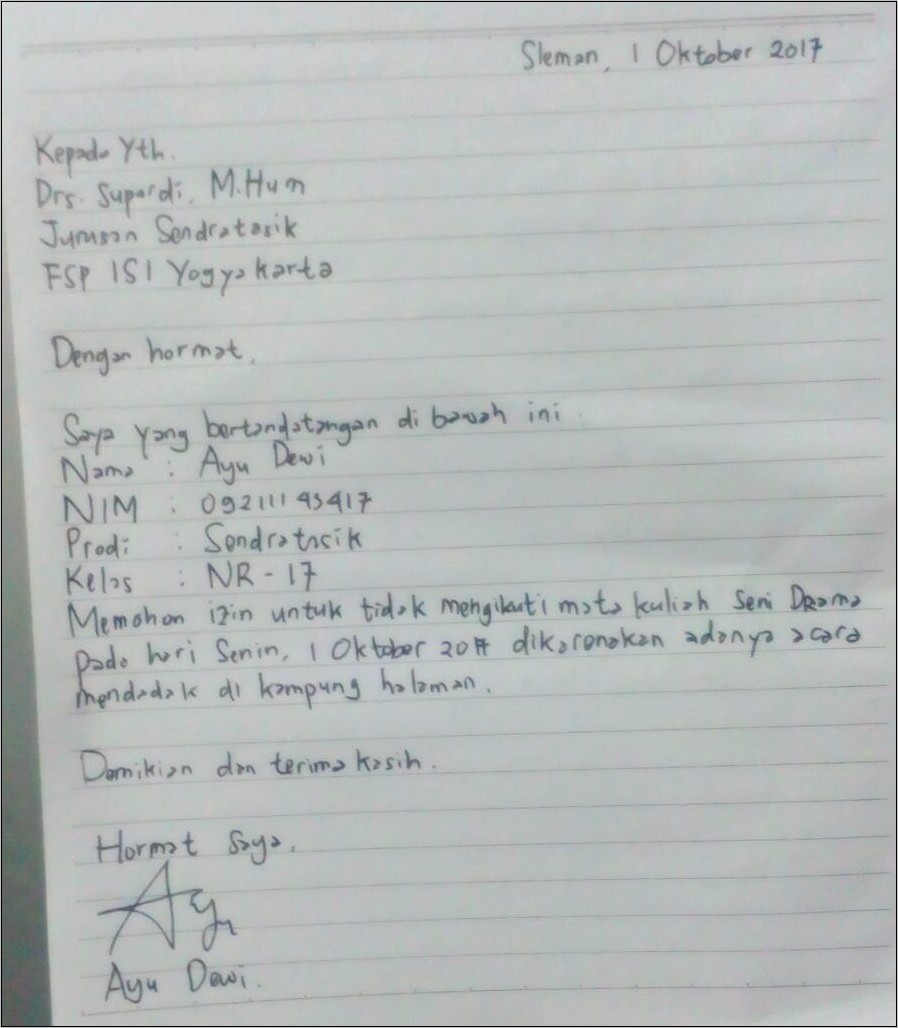 Sleman, 1 Oktober 2017
Kepada Yth.
Drs. Supardi, M.Hum
Jurusan Sendratasik
FSP ISI Yogyakarta
Dengan hormat,
Saya yang bertandatangan di bawah ini :
Nama : Ayu Dewi
NIM : 09211193417
Prodi : Sendratasik
Kelas : NR - 17
Memohon izin untuk tidak mengikuti mata kuliah Seni Drama
pada hari Senin, 1 Oktober 2017 dikarenakan adanya acara
mendadak di kampung halaman.
Demikian dan terima kasih.
Hormat saya,
Ayu
Ayu Dewi.